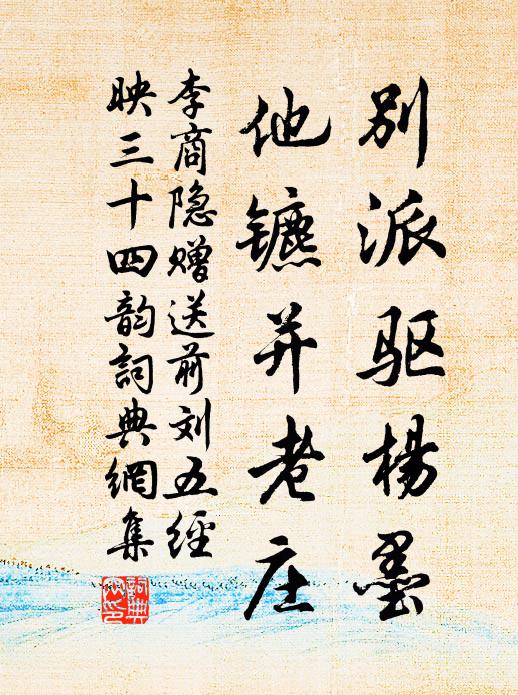 别派驱杨墨
他镳并老庄
李商隐赠送前刘五经
映三十四韵詞典網集